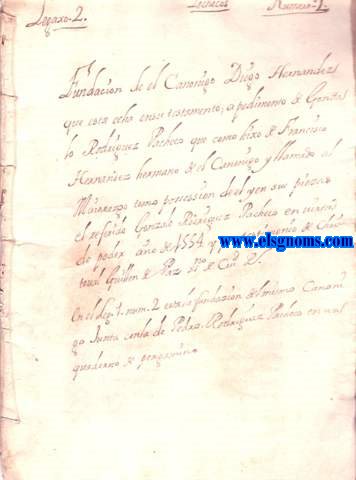 Legaxo-2. Pachecos Numero-1.
Fundacion de el Canonigo Diego Hernandez
que esta echa en su testamento; a pedimento de Gonza
lo Rodriguez Pacheco que como hixo de Francisco
Hernandez hermano de el Canonigo y llamado al
Maiorazgo tomo possession de el y en sus pieças
el referido Gonzalo Rodriguez Pacheco en
de poder año de 1554 y
www.elsgnoms.com
Guillen de Paz
En el leg. 1. num. 2 esta la fundacion de el mismo Canoni
go Junta con la de Pedro Rodriguez Pacheco en un
quaderno de pergamino